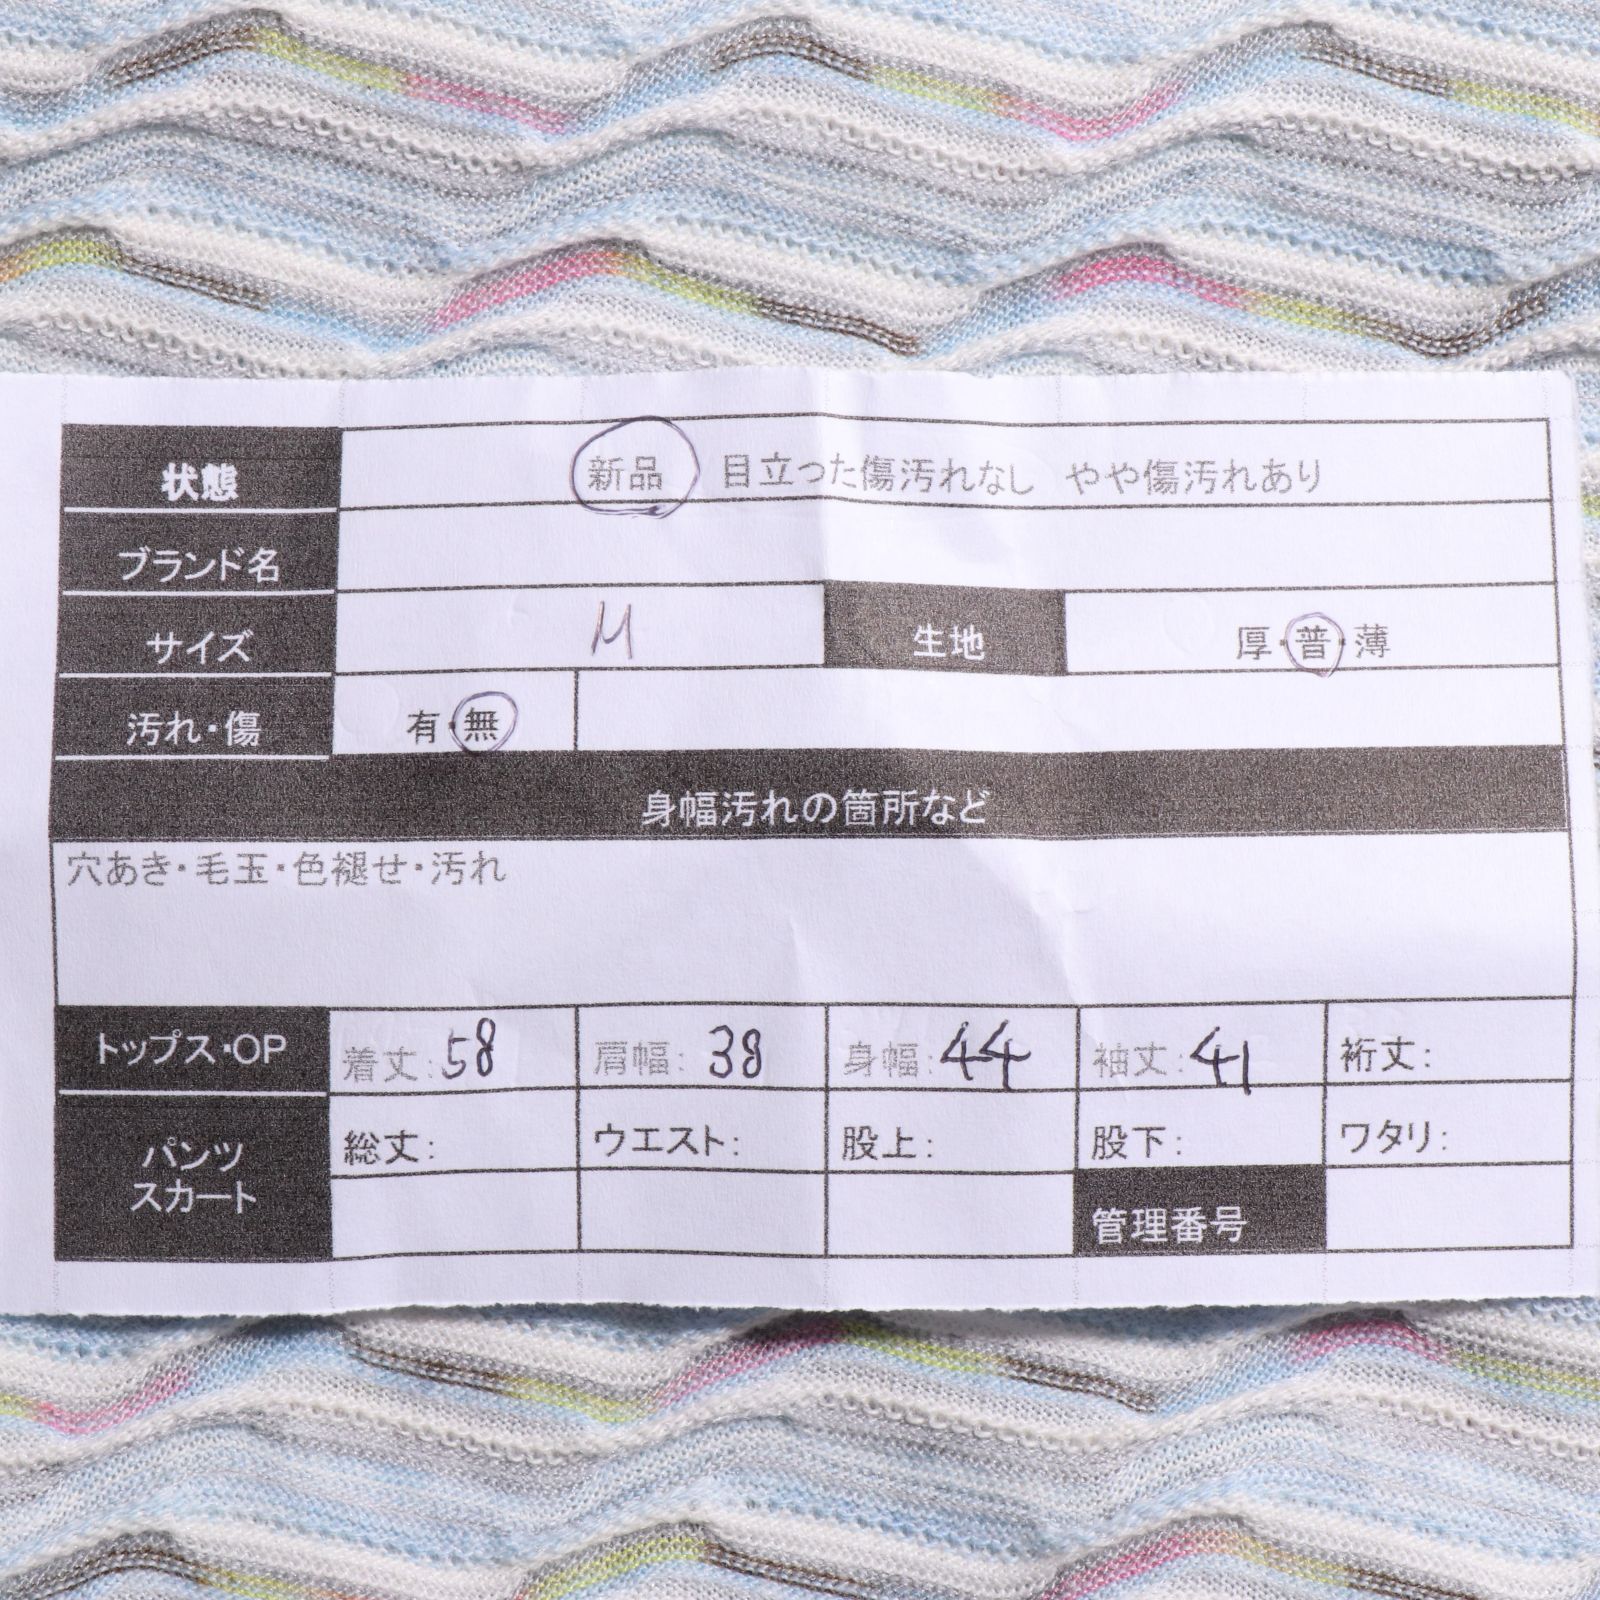 状態 新品 目立った傷汚れなし やや傷汚れあり
ブランド名
サイズ M 生地 厚・普・薄
汚れ・傷 有・無
身幅汚れの箇所など
穴あき・毛玉・色褪せ・汚れ
トップス・OP 着丈:58 肩幅:38 身幅:44 袖丈:41 裄丈:
パンツ スカート 総丈: ウエスト: 股上: 股下: ワタリ:
管理番号